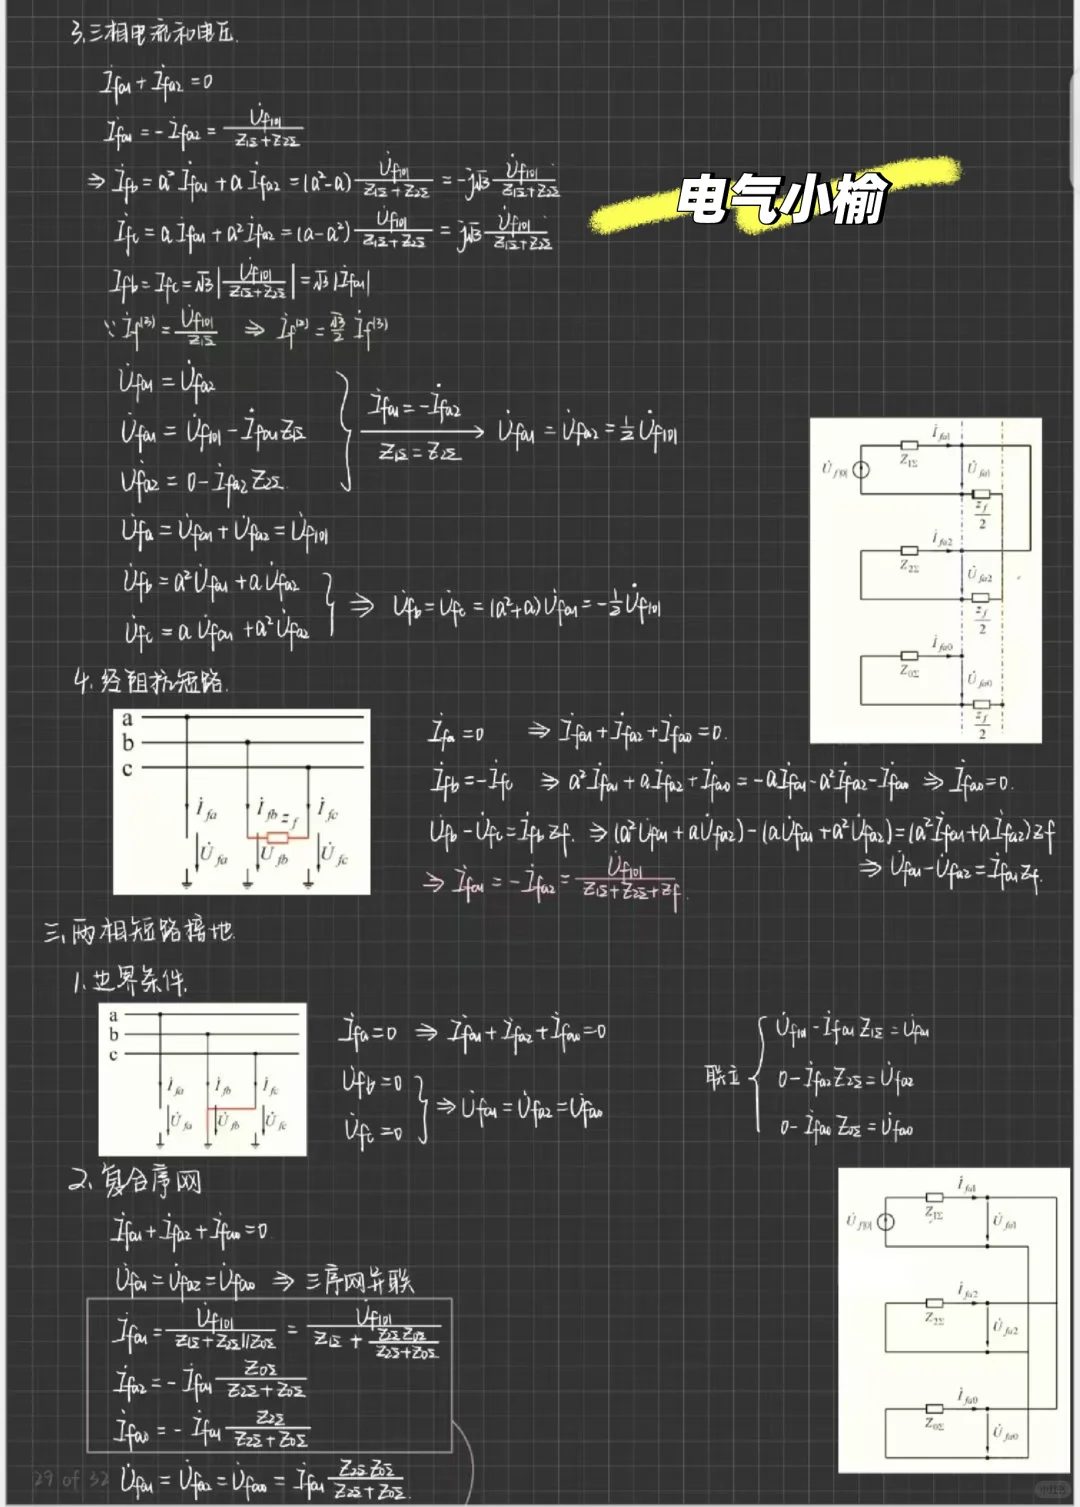 3.三相电流和电压.
İfa1 + İfa2 = 0
İfa1 = -İfa2 = U̇f|0| / (Z1Σ+Z2Σ)
⇒ İfb = a²İfa1 + aİfa2 = (a²-a) U̇f|0| / (Z1Σ+Z2Σ) = -j√3 U̇f|0| / (Z1Σ+Z2Σ)
电气小榆
İfc = aİfa1 + a²İfa2 = (a-a²) U̇f|0| / (Z1Σ+Z2Σ) = j√3 U̇f|0| / (Z1Σ+Z2Σ)
Ifb = Ifc = √3 |U̇f|0| / (Z1Σ+Z2Σ)| = √3 |İfa1|
∵ İf⁽³⁾ = U̇f|0| / Z1Σ ⇒ İf⁽²⁾ = √3/2 İf⁽³⁾
U̇fa1 = U̇fa2
U̇fa1 = U̇f|0| - İfa1 Z1Σ
U̇fa2 = 0 - İfa2 Z2Σ
İfa1 = -İfa2
Z1Σ = Z2Σ
→ U̇fa1 = U̇fa2 = ½ U̇f|0|
U̇fa = U̇fa1 + U̇fa2 = U̇f|0|
U̇fb = a²U̇fa1 + aU̇fa2
U̇fc = aU̇fa1 + a²U̇fa2
⇒ U̇fb = U̇fc = (a²+a)U̇fa1 = -½ U̇f|0|
U̇f|0| Z1Σ İfa1 U̇fa1 zf/2
Z2Σ İfa2 U̇fa2 zf/2
Z0Σ İfa0 U̇fa0 zf/2
4.经阻抗短路.
a
b
c
İfa İfb zf İfc
U̇fa U̇fb U̇fc
İfa = 0 ⇒ İfa1 + İfa2 + İfa0 = 0.
İfb = -İfc ⇒ a²İfa1 + aİfa2 + İfa0 = -aİfa1 - a²İfa2 - İfa0 ⇒ İfa0 = 0.
U̇fb - U̇fc = İfb zf. ⇒ (a²U̇fa1 + aU̇fa2) - (aU̇fa1 + a²U̇fa2) = (a²İfa1 + aİfa2) zf
⇒ U̇fa1 - U̇fa2 = İfa1 zf.
⇒ İfa1 = -İfa2 = U̇f|0| / (Z1Σ+Z2Σ+zf).
三、两相短路接地.
1.边界条件.
a
b
c
İfa İfb İfc
U̇fa U̇fb U̇fc
İfa = 0 ⇒ İfa1 + İfa2 + İfa0 = 0
U̇fb = 0
U̇fc = 0
⇒ U̇fa1 = U̇fa2 = U̇fa0
联立
U̇f|0| - İfa1 Z1Σ = U̇fa1
0 - İfa2 Z2Σ = U̇fa2
0 - İfa0 Z0Σ = U̇fa0
2.复合序网
İfa1 + İfa2 + İfa0 = 0
U̇fa1 = U̇fa2 = U̇fa0 ⇒ 三序网并联
İfa1 = U̇f|0| / (Z1Σ+Z2Σ||Z0Σ) = U̇f|0| / (Z1Σ + Z2ΣZ0Σ / (Z2Σ+Z0Σ))
İfa2 = -İfa1 Z0Σ / (Z2Σ+Z0Σ)
İfa0 = -İfa1 Z2Σ / (Z2Σ+Z0Σ)
U̇fa1 = U̇fa2 = U̇fa0 = İfa1 Z2ΣZ0Σ / (Z2Σ+Z0Σ).
U̇f|0| Z1Σ İfa1 U̇fa1
Z2Σ İfa2 U̇fa2
Z0Σ İfa0 U̇fa0
29 of 32
小红书